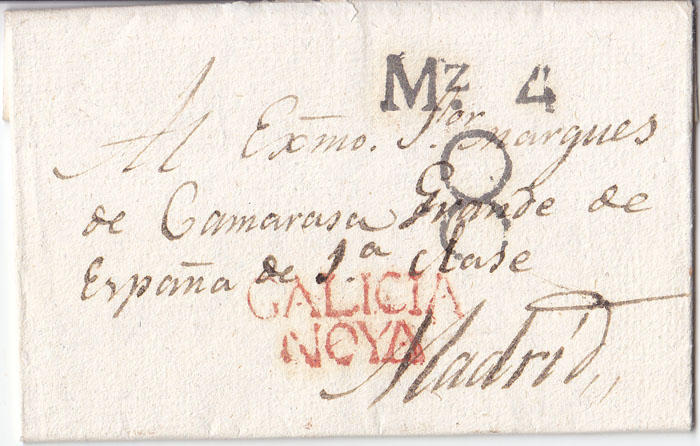 Mz. 4
Al Exmo. Sor. marques
8
de Camarasa Grande de
España de 1.a clase
GALICIA
NOYA
Madrid